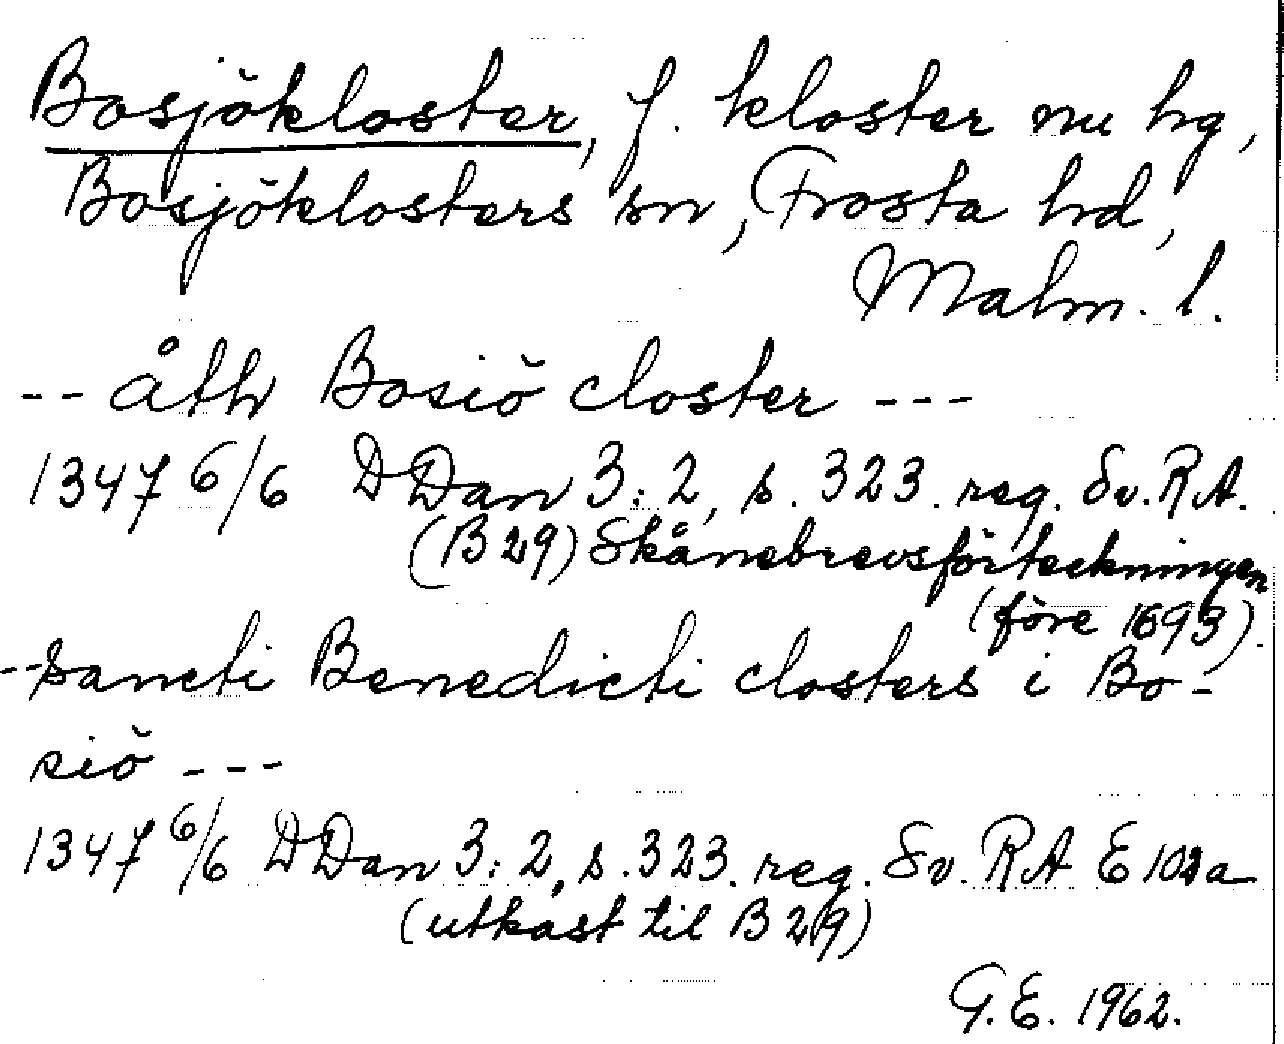 Bosjökloster, f. kloster nu hg,
Bosjöklosters sn, Frosta hd,
Malm. l.
-- åth Bosiö closter ---
1347 6/6 DDan 3:2, s. 323. reg. Sv. R.A.
(B 29) Skånebrevsförteckningen
(före 1693).
-- sancti Benedicti closters i Bo-
siö ---
1347 6/6 DDan 3:2, s. 323. reg. Sv. RA E 102a
(utkast til B 29)
G.E. 1962.